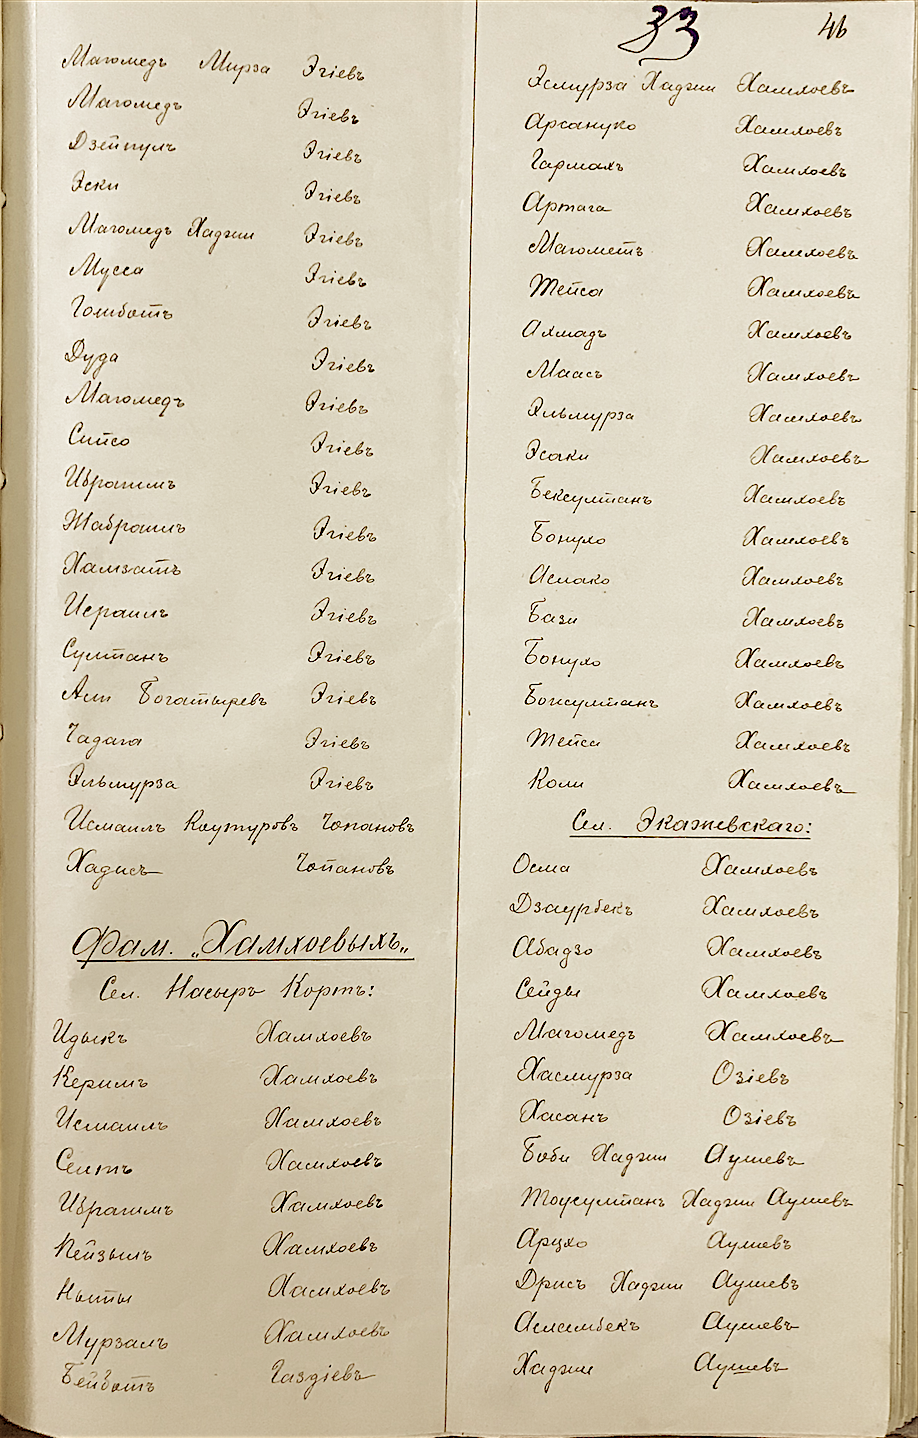 33
46
Магомедъ Мирза Эгіевъ
Магомедъ Эгіевъ
Дзейпулъ Эгіевъ
Эски Эгіевъ
Магомедъ Хаджи Эгіевъ
Мусса Эгіевъ
Гомботъ Эгіевъ
Дуда Эгіевъ
Магомедъ Эгіевъ
Сипсо Эгіевъ
Ибрагимъ Эгіевъ
Жабраилъ Эгіевъ
Хамзатъ Эгіевъ
Исраилъ Эгіевъ
Султанъ Эгіевъ
Али Богатыревъ Эгіевъ
Чадага Эгіевъ
Эльмурза Эгіевъ
Исмаилъ Чопановъ
Хадисъ Чопановъ
Фам. „Хамхоевыхъ„
Сел. Насыръ Кортъ:
Идыкъ Хамхоевъ
Керимъ Хамхоевъ
Исмаилъ Хамхоевъ
Сеитъ Хамхоевъ
Ибрагимъ Хамхоевъ
Пейзылъ Хамхоевъ
Ныты Хамхоевъ
Мурзалъ Хамхоевъ
Бейботъ Газдіевъ
Эсмурза Хаджи Хамхоевъ
Арсануко Хамхоевъ
Гармахъ Хамхоевъ
Артага Хамхоевъ
Магометъ Хамхоевъ
Тейса Хамхоевъ
Ахмадъ Хамхоевъ
Маасъ Хамхоевъ
Эльмурза Хамхоевъ
Эсаки Хамхоевъ
Бексултанъ Хамхоевъ
Бонухо Хамхоевъ
Аслако Хамхоевъ
Бази Хамхоевъ
Бонухо Хамхоевъ
Бонсултанъ Хамхоевъ
Тейси Хамхоевъ
Коли Хамхоевъ
Сел. Экажевскаго:
Осма Хамхоевъ
Дзаурбекъ Хамхоевъ
Абадзо Хамхоевъ
Сейды Хамхоевъ
Магомедъ Хамхоевъ
Хасмурза Озіевъ
Хасанъ Озіевъ
Боби Хаджи Аушевъ
Тоусултанъ Хаджи Аушевъ
Арцхо Аушевъ
Дрисъ Хаджи Аушевъ
Асламбекъ Аушевъ
Хаджи Аушевъ